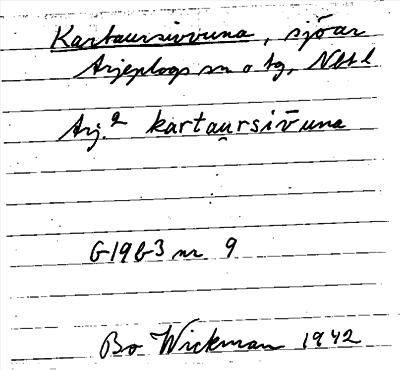 Kartaursivvuna, sjöar
Arjeplogs sn o tg, Nbtl
Arj.a kartau̯rsiv̄una
G19b3 nr 9
Bo Wickman 1942